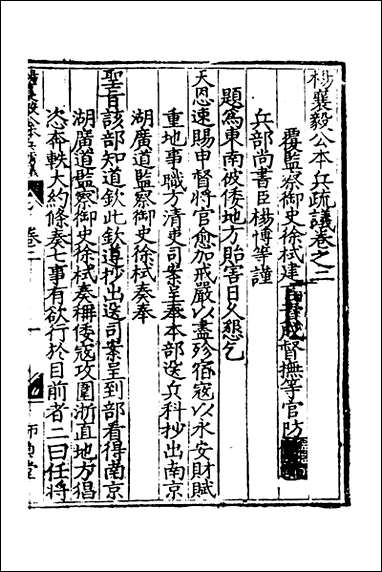 楊襄毅公本兵疏議卷之二
覆監察御史徐栻建督撫等官防
兵部尚書臣楊博等謹
題爲東南被倭地方貽害日久懇乞
天恩速賜申督將官愈加戒嚴以盡殄宿寇以永安財賦
重地事職方清吏司案呈奉本部送兵科抄出南京
湖廣道監察御史徐栻奏奉
聖旨該部知道欽此欽遵抄出送司案呈到部看得南京
湖廣道監察御史徐栻奏稱倭寇攻圍浙直地方猖
恣奔軼大約條奏七事有欲行於目前者二曰任將
師貞堂